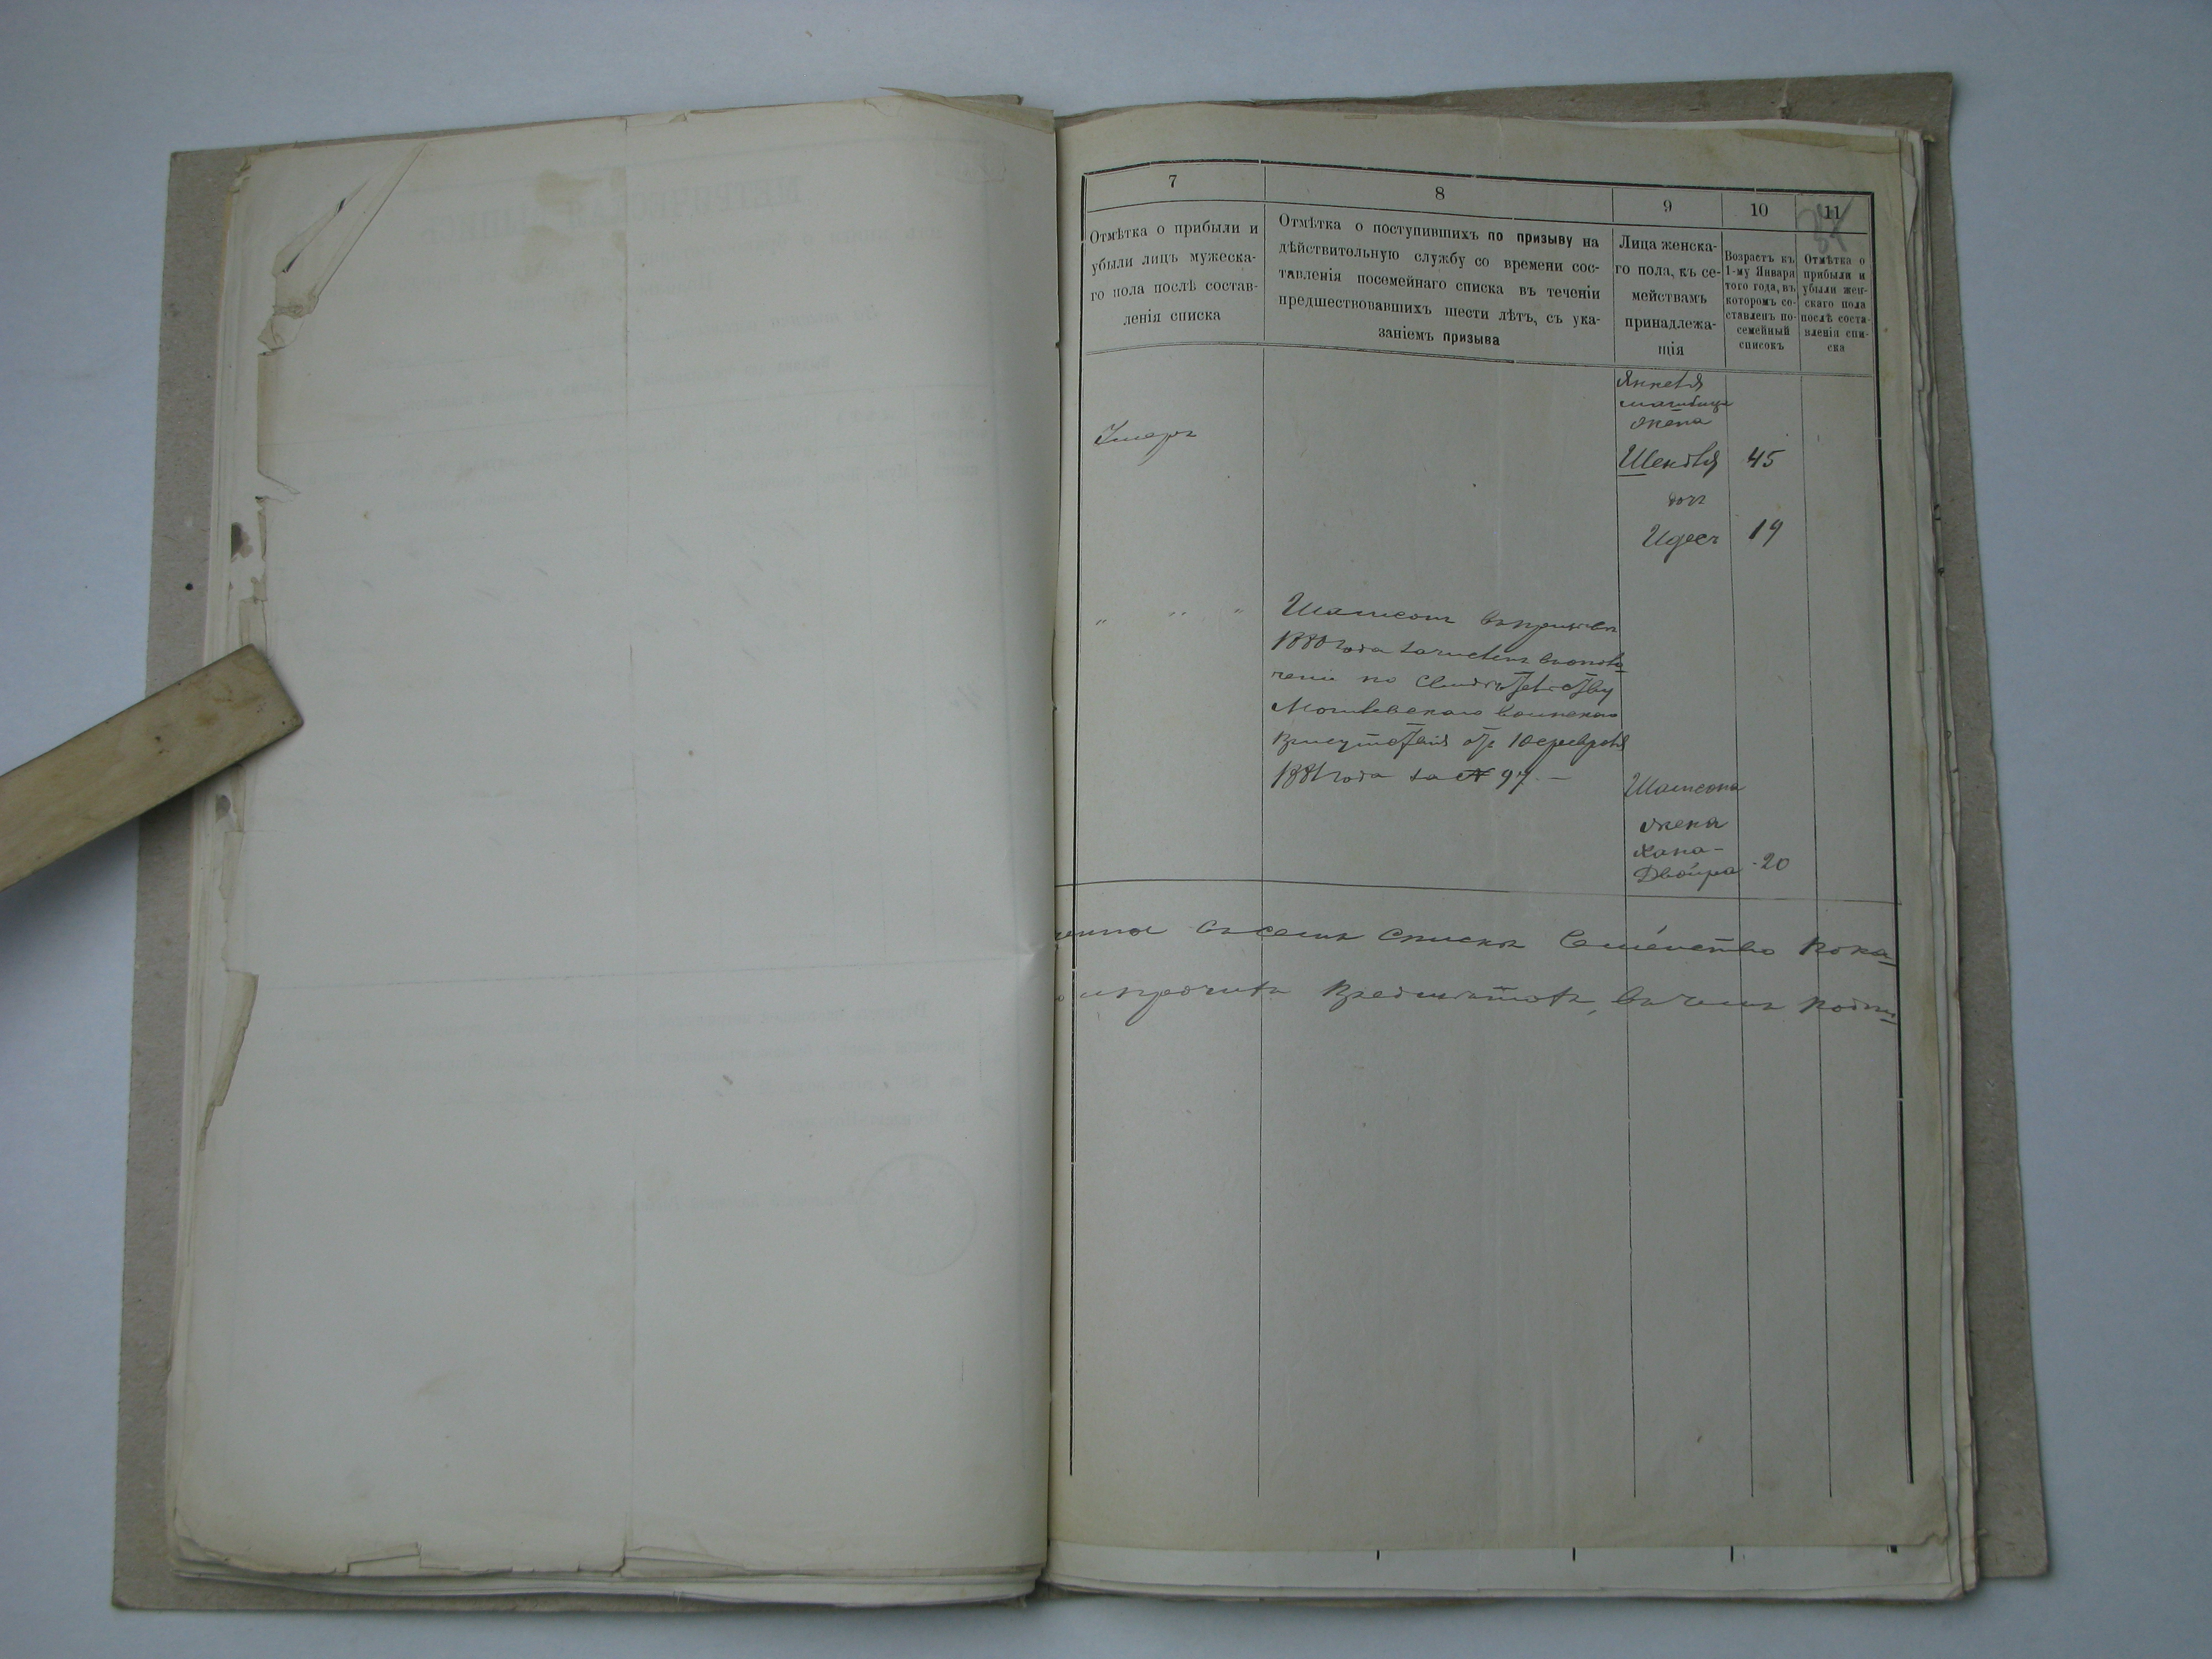 7
Отмѣтка о прибыли и
убыли лицъ мужеска-
го пола послѣ состав-
ленія списка
8
Отмѣтка о поступившихъ по призыву на
дѣйствительную службу со времени сос-
тавленія посемейнаго списка въ теченіи
предшествовавшихъ шести лѣтъ, съ ука-
заніемъ призыва
9
Лица женска-
го пола, къ се-
мействамъ
принадлежа-
щія
10
Возрастъ къ
1-му Января
того года, въ
которомъ со-
ставленъ по-
семейный
списокъ
11
Отмѣтка о
прибыли и
убыли жен-
скаго пола
послѣ соста-
вленія спи-
ска
Янкеля
жена
Умеръ
45
доч
Идесъ 19
" " "
Шамсонъ въ призывъ
1880 года зачисленъ въ опол-
ченіе по свидѣтельству
Могилевскаго воинскаго
Присутствія отъ 10 февраля
1881 года за № 97.—
Шамсона
жена
Хана-
Двойра 20
въ семъ спискѣ семейство пока-
и прочитъ въ чемъ подпи-